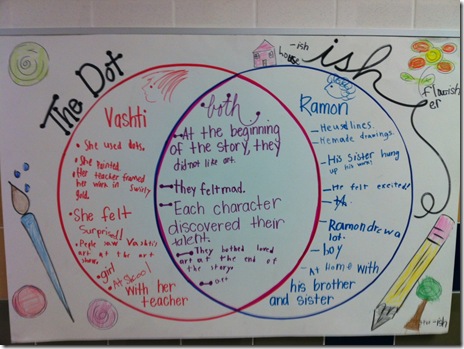 The Dot
Vashti
• She used dots.
• She Painted.
• Her teacher framed
her work in swirly
gold.
• She felt
Surprised!
• People saw Vashti's
art at the art
show.
• girl
• At School
with her
teacher
both
At the beginning
of the story, they
did not like art.
They felt mad.
Each character
discovered their
talent.
They bothed loved
art at the end of
the story.
art
ish
-ish
house
Ramon
He used lines.
He made drawings.
His sister hung
up his work.
He felt excited!
Ramon drew a
lot.
boy
At Home with
his brother
and sister
flourish
er
-ish